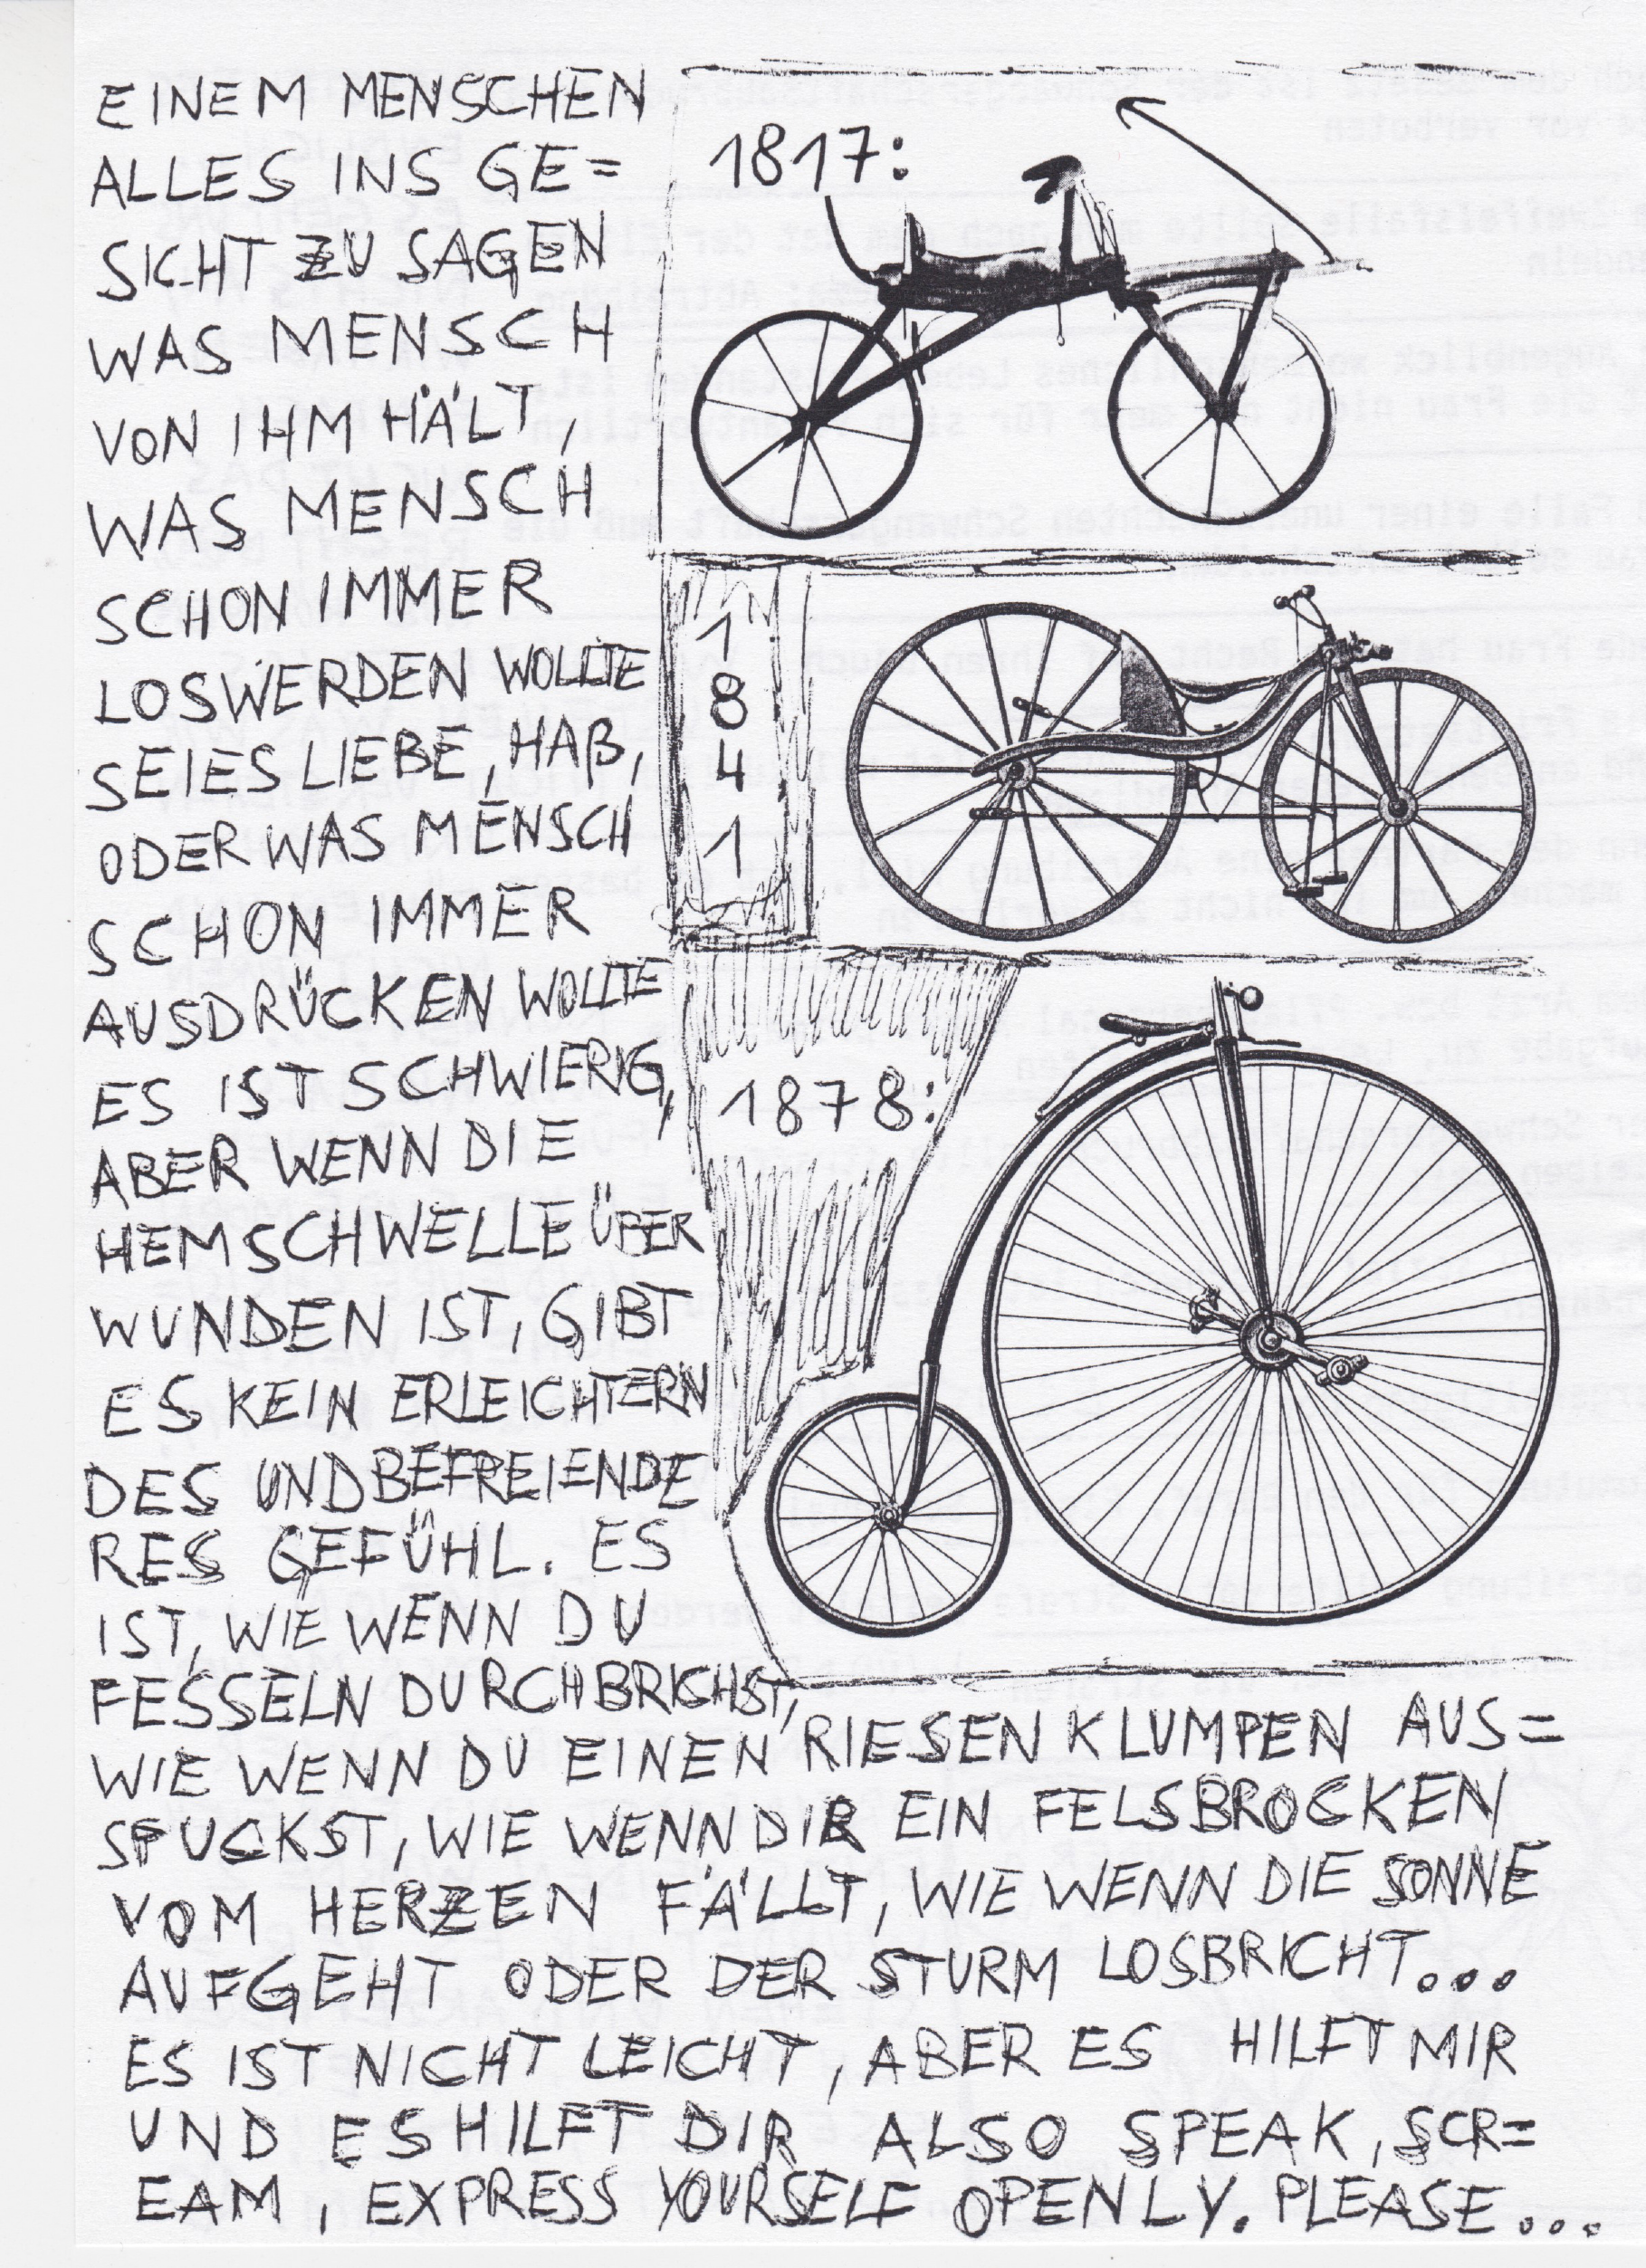 EINEM MENSCHEN
ALLES INS GE=
SICHT ZU SAGEN
WAS MENSCH
VON IHM HÄLT,
WAS MENSCH
SCHON IMMER
LOSWERDEN WOLLTE
SEI ES LIEBE, HAß,
ODER WAS MENSCH
SCHON IMMER
AUSDRÜCKEN WOLLTE
ES IST SCHWIERIG,
ABER WENN DIE
HEMSCHWELLE ÜBER
WUNDEN IST, GIBT
ES KEIN ERLEICHTERN
DES UND BEFREIENDE
RES GEFÜHL. ES
IST, WIE WENN DU
FESSELN DURCHBRICHST,
WIE WENN DU EINEN RIESEN KLUMPEN AUS=
SPUCKST, WIE WENN DIR EIN FELSBROCKEN
VOM HERZEN FÄLLT, WIE WENN DIE SONNE
AUFGEHT ODER DER STURM LOSBRICHT...
ES IST NICHT LEICHT, ABER ES HILFT MIR
UND ES HILFT DIR ALSO SPEAK, SCR=
EAM, EXPRESS YOURSELF OPENLY. PLEASE...
1817:
1
8
4
1
1878: